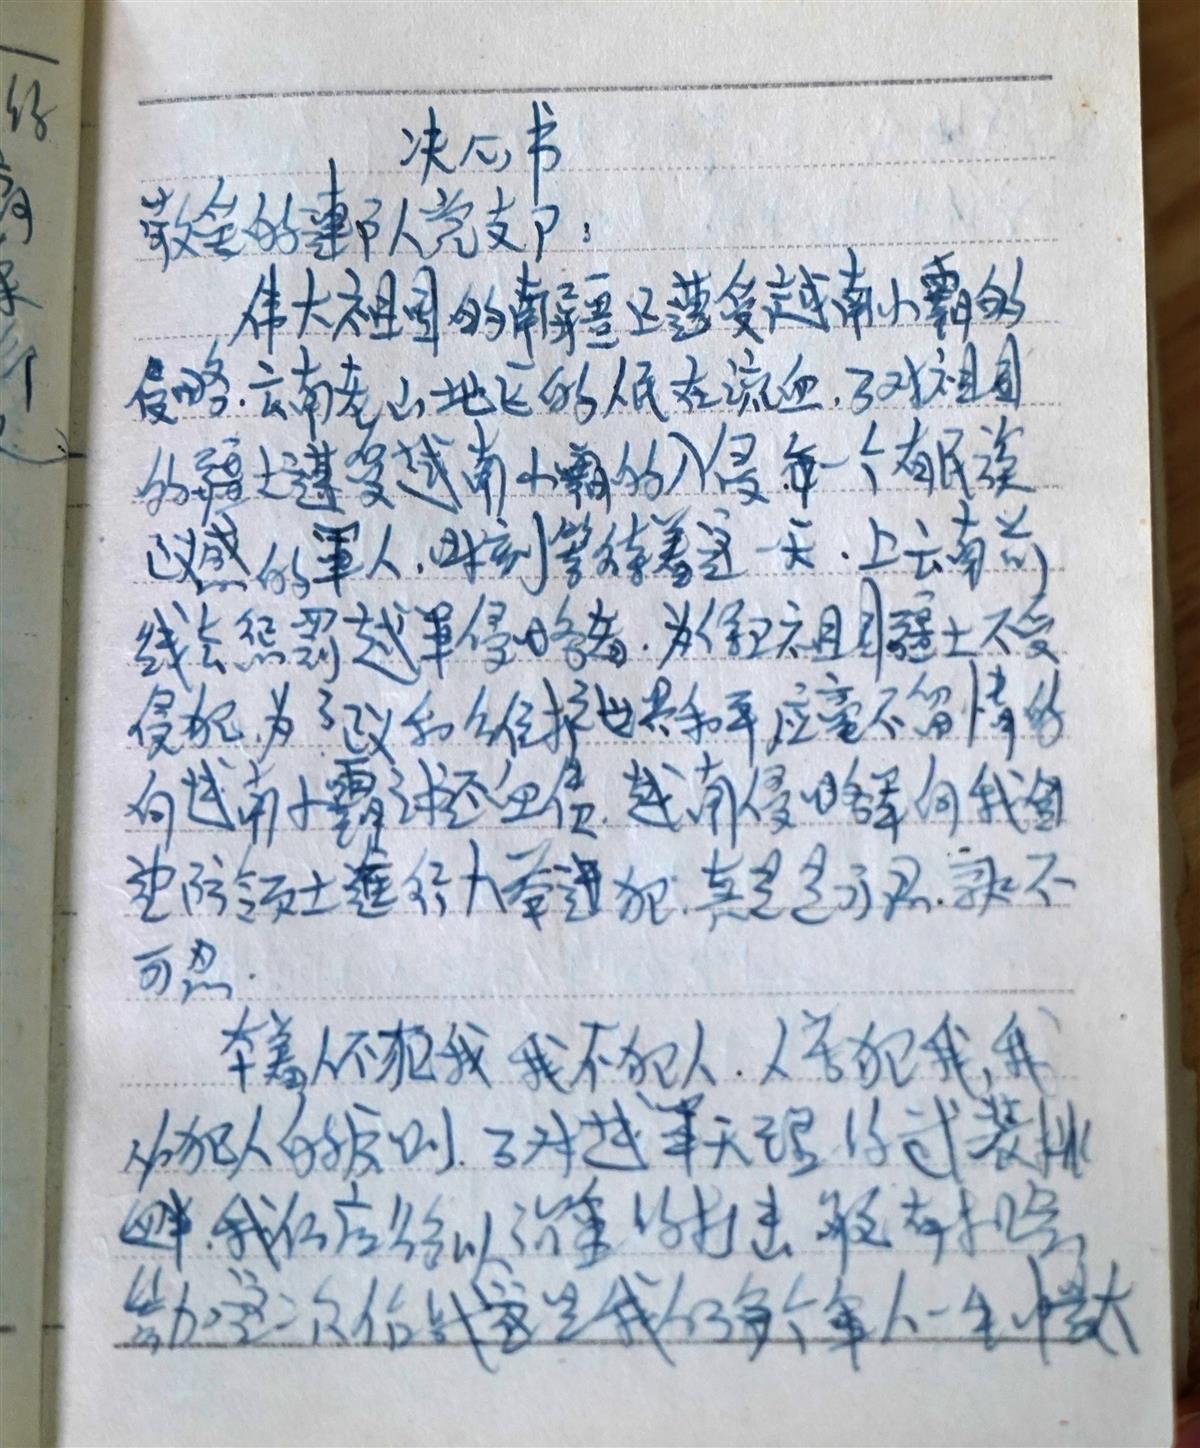 决心书
敬爱的连部队党支部：
伟大祖国的南疆正遭受越南小霸的
侵略.云南老山地区的人民在流血.了对祖国
的疆土遭受越南小霸的入侵.每一个有民族
议感的军人,时刻等待着这一天.上云南前
线去惩罚越军侵略者.为保卫祖国疆土不受
侵犯,为了议和维护世界和平应毫不留情的
向越南小霸讨还血债.越南侵略军向我国
边防领土进行大举进犯.真是是可忍.孰不
可忍.
本着人不犯我 我不犯人.人若犯我,我
必犯人的原则.了对越军无理的武装挑
衅.我们应给以沉重的打击
这次作战这是我们每个军人一生中最大